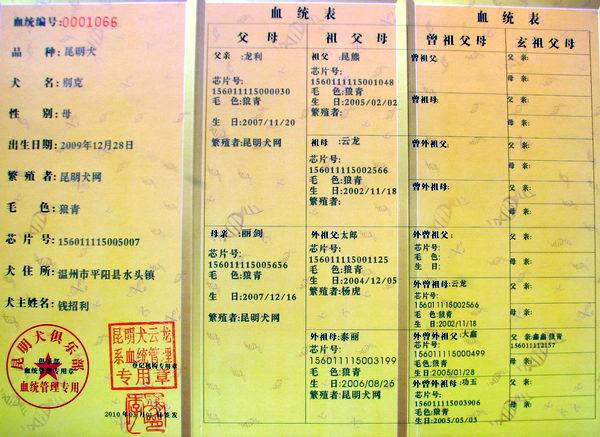 血统编号:0001066
品 种:昆明犬
犬 名:别克
性 别:母
出生日期:2009年12月28日
繁殖者:昆明犬网
毛 色:狼青
芯片号:156011115005007
犬住所:温州市平阳县水头镇
犬主姓名:钱招利
昆明犬俱乐部
俱乐部
血统管理专用章
血统管理专用
昆明犬云龙
系血统管理
登记机构专用章
专用章
血统表
父母
祖父母
父亲:龙利
芯片号:
156011115000030
毛色:狼青
生 日:2007/11/20
繁殖者:昆明犬网
母亲:丽剑
芯片号:
156011115005656
毛色:狼青
生 日:2007/12/16
繁殖者:昆明犬网
祖父:昆熊
芯片号:
156011115001048
毛 色:狼青
生 日:2005/02/02
繁殖者:
祖母:云龙
芯片号:
156011115002566
毛 色:狼青
生 日:2002/11/18
繁殖者:
外祖父:太郎
芯片号:
156011115001125
毛 色:狼青
生 日:2004/12/05
繁殖者:杨虎
外祖母:泰丽
芯片号:
156011115003199
毛 色:狼青
生 日:2006/08/26
繁殖者:昆明犬网
血统表
曾祖父母
玄祖父母
曾祖父:
芯片号:
毛 色:
生 日:
父 亲:
母 亲:
曾祖母:
父 亲:
母 亲:
曾外祖父:
父 亲:
母 亲:
曾外祖母:
父 亲:
母 亲:
外曾祖父:
芯片号:
毛 色:
生 日:
父 亲:
母亲:
外曾祖母:云龙
芯片号:
156011115002566
毛色:狼青
生日:2002/11/18
父 亲:
母亲:
外曾外祖父:大鑫
芯片号:
156011115000499
毛色:狼青
生日:2005/01/28
父 亲:鑫鑫 狼青
156011112157
母亲:
外曾外祖母:功玉
芯片号:
156011115003906
毛色:狼青
生日:2005/05/03
父 亲:
母亲: